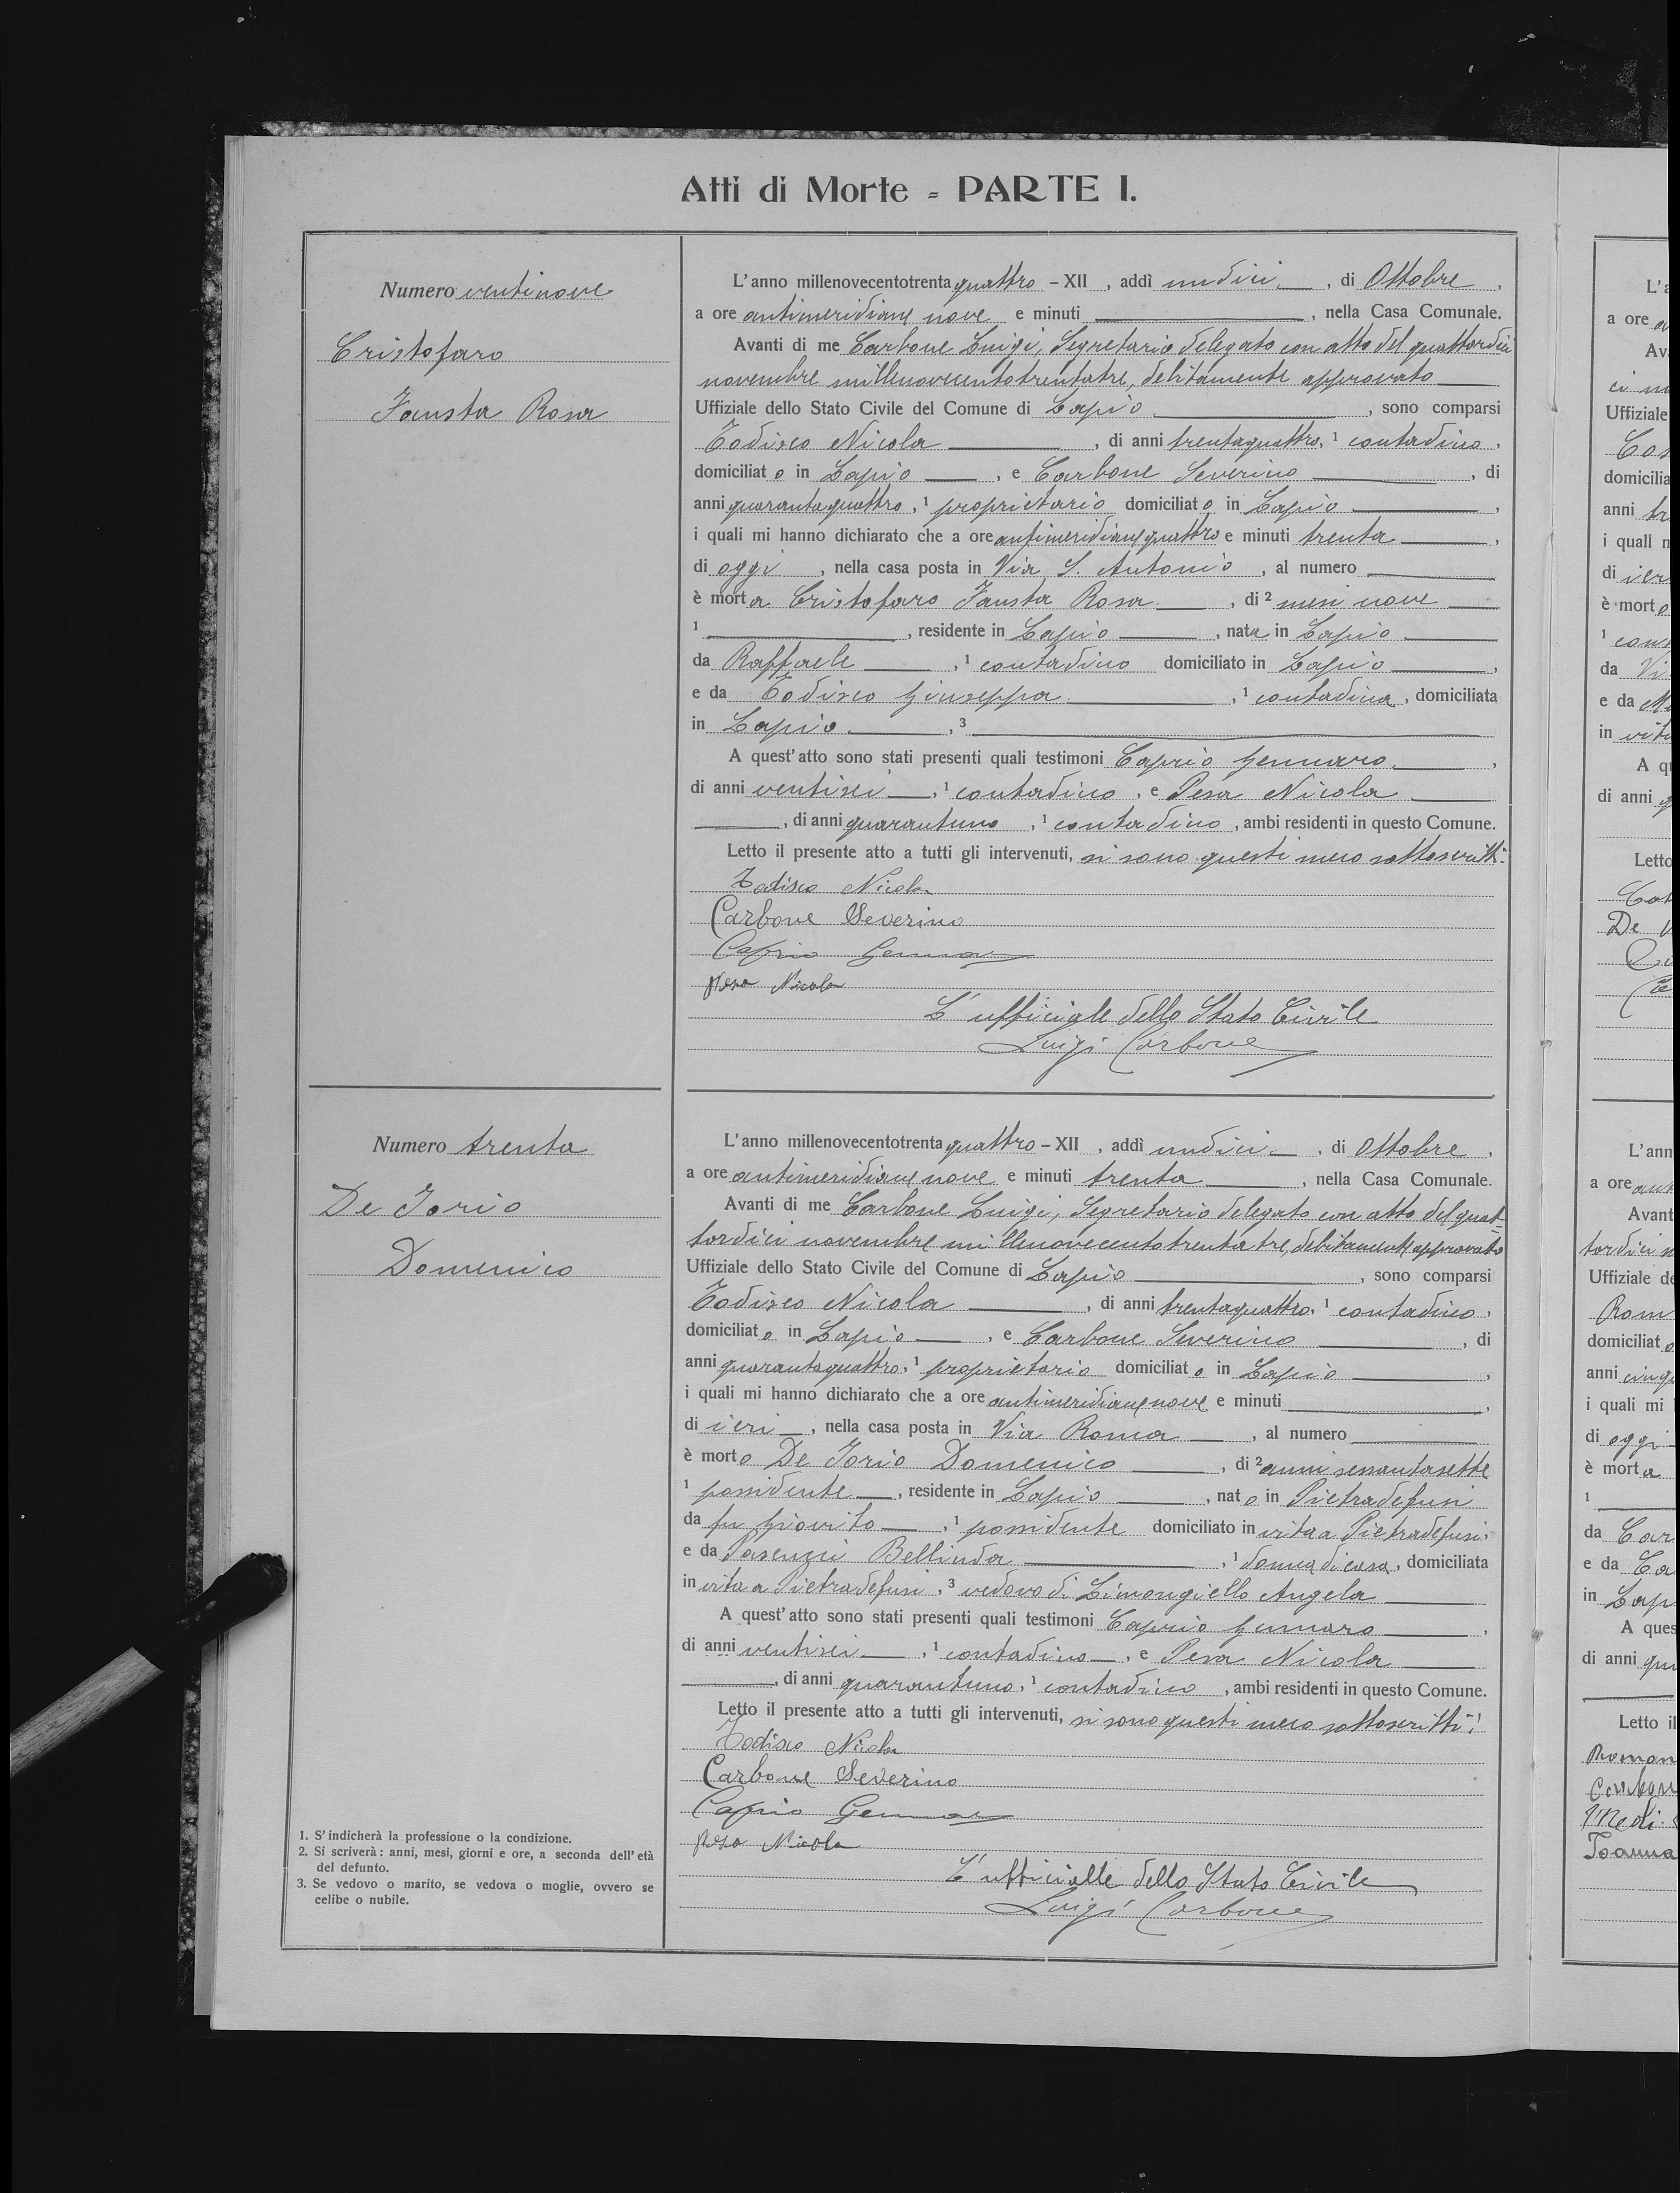 Atti di Morte = PARTE I.
Numero ventinove
Cristofaro
Fausta Rosa
L'anno millenovecentotrentaquattro - XII, addì undici, di Ottobre,
a ore antimeridiane nove e minuti, nella Casa Comunale.
Avanti di me Carbone Luigi, Segretario delegato con atto del quattordici
novembre millenovecentotrentatre, debitamente approvato
Uffiziale dello Stato Civile del Comune di Lapio, sono comparsi
Todisco Nicola, di anni trentaquattro, 1 contadino,
domiciliato in Lapio, e Carbone Severino, di
anni quarantaquattro, 1 proprietario domiciliato in Lapio,
i quali mi hanno dichiarato che a ore antimeridiane quattro e minuti trenta,
di oggi, nella casa posta in Via S. Antonio, al numero
è morta Cristofaro Fausta Rosa, di 2 mesi nove
1, residente in Lapio, nata in Lapio
da Raffaele, 1 contadino domiciliato in Lapio,
e da Todisco Giuseppa, 1 contadina, domiciliata
in Lapio, 3
A quest'atto sono stati presenti quali testimoni Caprio Gennaro,
di anni ventisei, 1 contadino, e Pesa Nicola
, di anni quarantuno, 1 contadino, ambi residenti in questo Comune.
Letto il presente atto a tutti gli intervenuti, si sono questi meco sottoscritti:
Todisco Nicola
Carbone Severino
Caprio Gennaro
Pesa Nicola
L'ufficiale dello Stato Civile
Luigi Carbone
Numero trenta
De Iorio
Domenico
L'anno millenovecentotrentaquattro - XII, addì undici, di Ottobre,
a ore antimeridiane nove e minuti trenta, nella Casa Comunale.
Avanti di me Carbone Luigi, Segretario delegato con atto del quat-
tordici novembre millenovecentotrentatre, debitamente approvato
Uffiziale dello Stato Civile del Comune di Lapio, sono comparsi
Todisco Nicola, di anni trentaquattro, 1 contadino,
domiciliato in Lapio, e Carbone Severino, di
anni quarantaquattro, 1 proprietario domiciliato in Lapio,
i quali mi hanno dichiarato che a ore antimeridiane nove e minuti,
di ieri, nella casa posta in Via Roma, al numero
è morto De Iorio Domenico, di 2 anni sessantasette
1 possidente, residente in Lapio, nato in Pietradefusi
da fu Giovito, 1 possidente domiciliato in vita a Pietradefusi,
e da Bellinda, 1 donna di casa, domiciliata
in vita a Pietradefusi, 3 vedovo di Limongiello Angela
A quest'atto sono stati presenti quali testimoni Caprio Gennaro,
di anni ventisei, 1 contadino, e Pesa Nicola
, di anni quarantuno, 1 contadino, ambi residenti in questo Comune.
Letto il presente atto a tutti gli intervenuti, si sono questi meco sottoscritti:
Todisco Nicola
Carbone Severino
Caprio Gennaro
Pesa Nicola
L'ufficialle dello Stato Civile
Luigi Carbone
1. S'indicherà la professione o la condizione.
2. Si scriverà: anni, mesi, giorni e ore, a seconda dell'età
del defunto.
3. Se vedovo o marito, se vedova o moglie, ovvero se
celibe o nubile.
a ore
Uffiziale
domicilia
anni
i quali
di ieri
è morto
da
e da
in vita
di anni
Letto
De
a ore
Avant
Uffiziale de
domiciliato
anni
i quali mi
di oggi
è morta
1
da Car
e da
in Lap
A ques
di anni
Letto il